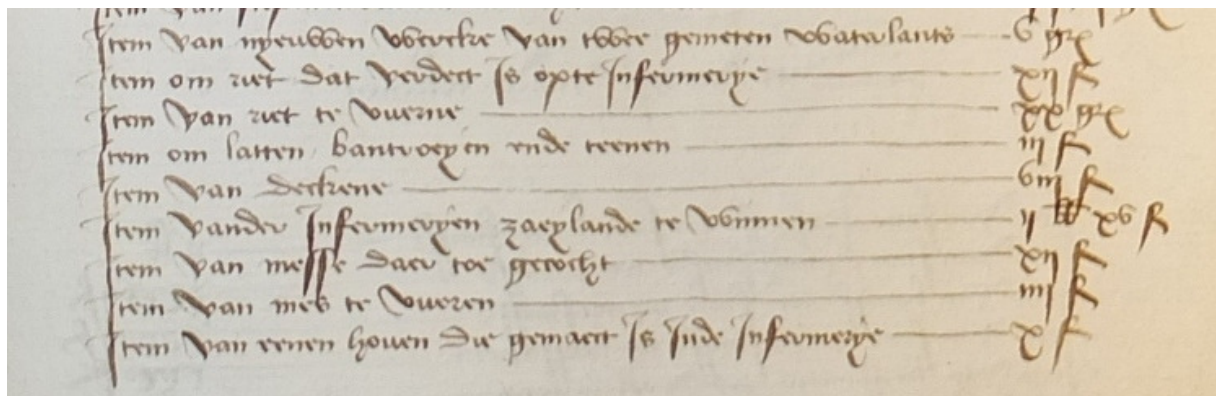 Item van nyeuwen wercke van twee gemeten waterlants v grͦ
Item om riet dat verdect is opte Infermerye xij ſ
Item van riet te vuerne xx grͦ
Item om latten bantroeyen ende teenen iij ſ
Item van deckene viij ſ
Item vander Infermeryen zaeylande te winnen ij lb xv ſ
Item van messe daer toe gecocht xij ſ
Item van mes te vueren iiij ſ
Item van eenen hoven die gemaect is inde Infermerye x ſ